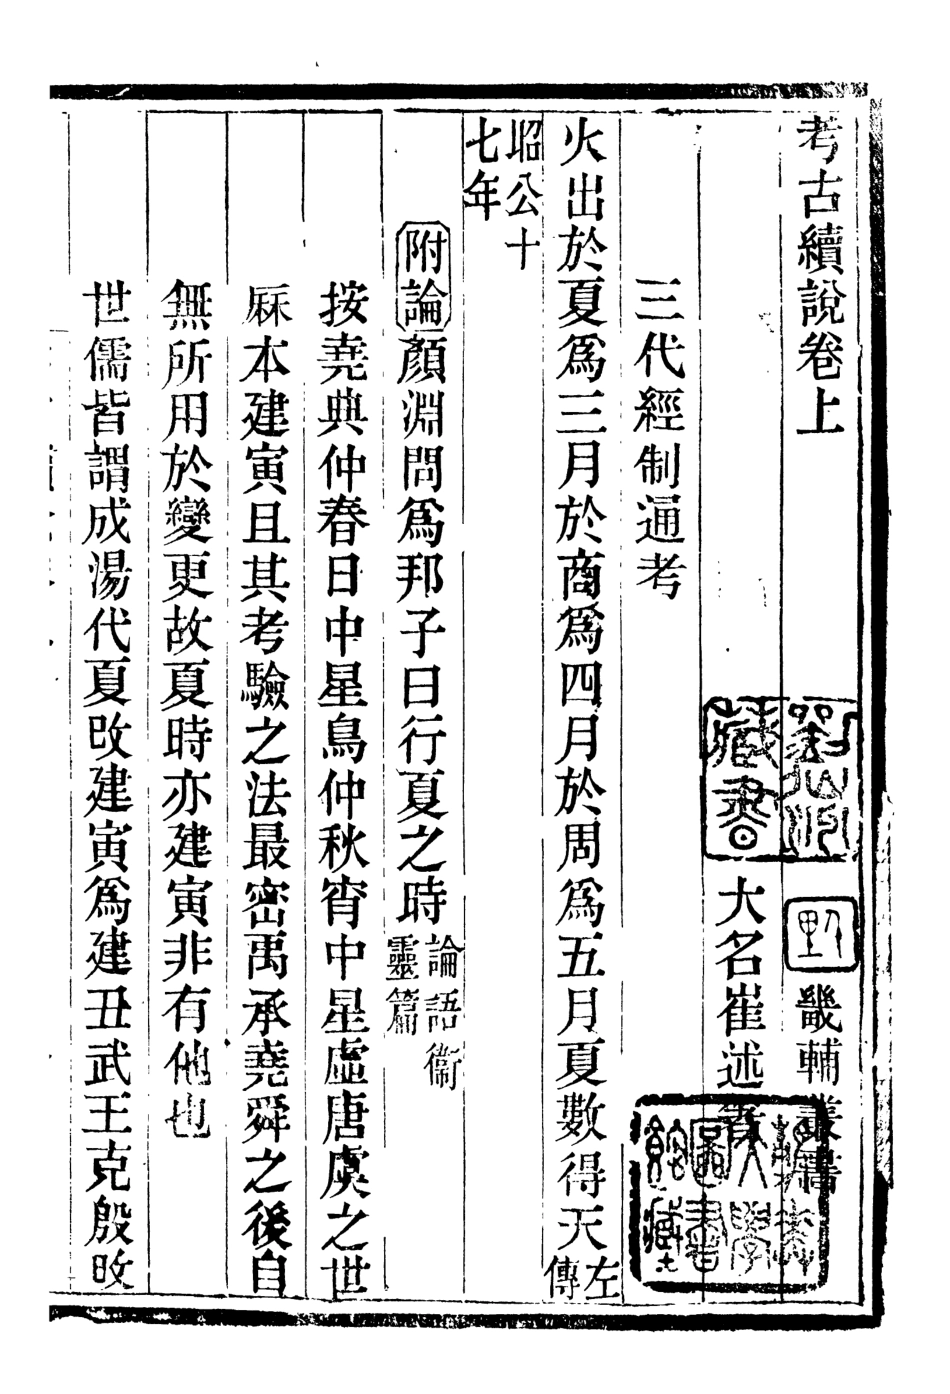 考古續說卷上
畿輔叢書
大名崔述著
三代經制通考
火出於夏爲三月於商爲四月於周爲五月夏數得天左傳
昭公十七年
附論顏淵問爲邦子曰行夏之時論語衞靈篇
按堯典仲春日中星鳥仲秋宵中星虛唐虞之世
厤本建寅且其考驗之法最密禹承堯舜之後自
無所用於變更故夏時亦建寅非有他也
世儒皆謂成湯代夏改建寅爲建丑武王克殷改
藏書